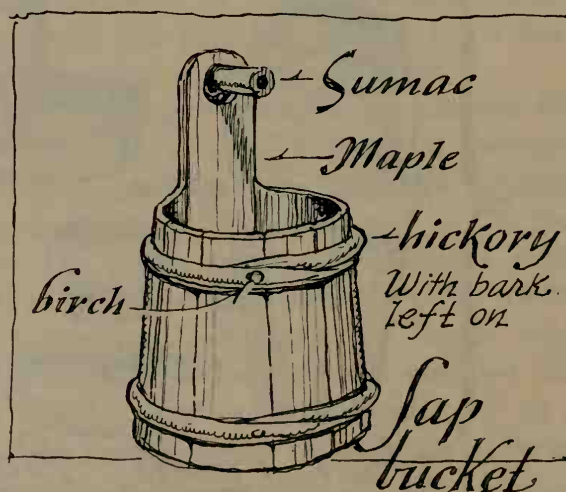 Sumac
Maple
hickory
With bark
left on
birch
Sap
bucket